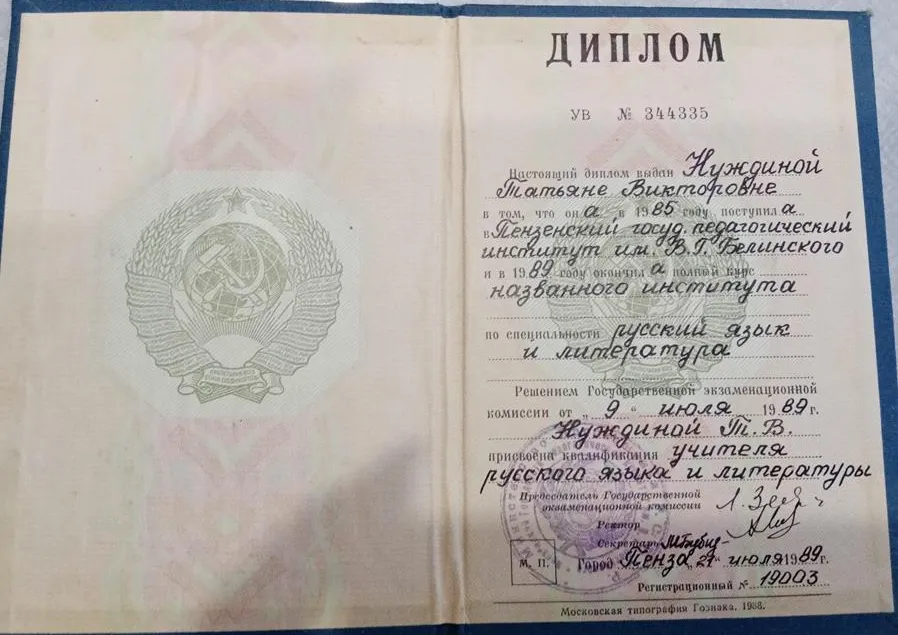 ДИПЛОМ
УВ № 344335
Настоящий диплом выдан Нуждиной
Татьяне Викторовне
в том, что он а в 1985 году поступил а
в Пензенский госуд. педагогический
институт им. В.Г. Белинского
и в 1989 году окончил а полный курс
названного института
по специальности русский язык
и литература
Решением Государственной экзаменационной
комиссии от „ 9 “ июля 1989 г.
Нуждиной Т. В.
присвоена квалификация учителя
русского языка и литературы
Председатель Государственной
экзаменационной комиссии
Ректор
Секретарь
М. П. Город Пенза „ “ июля 1989 г.
Регистрационный № 19003
Московская типография Гознака. 1988.